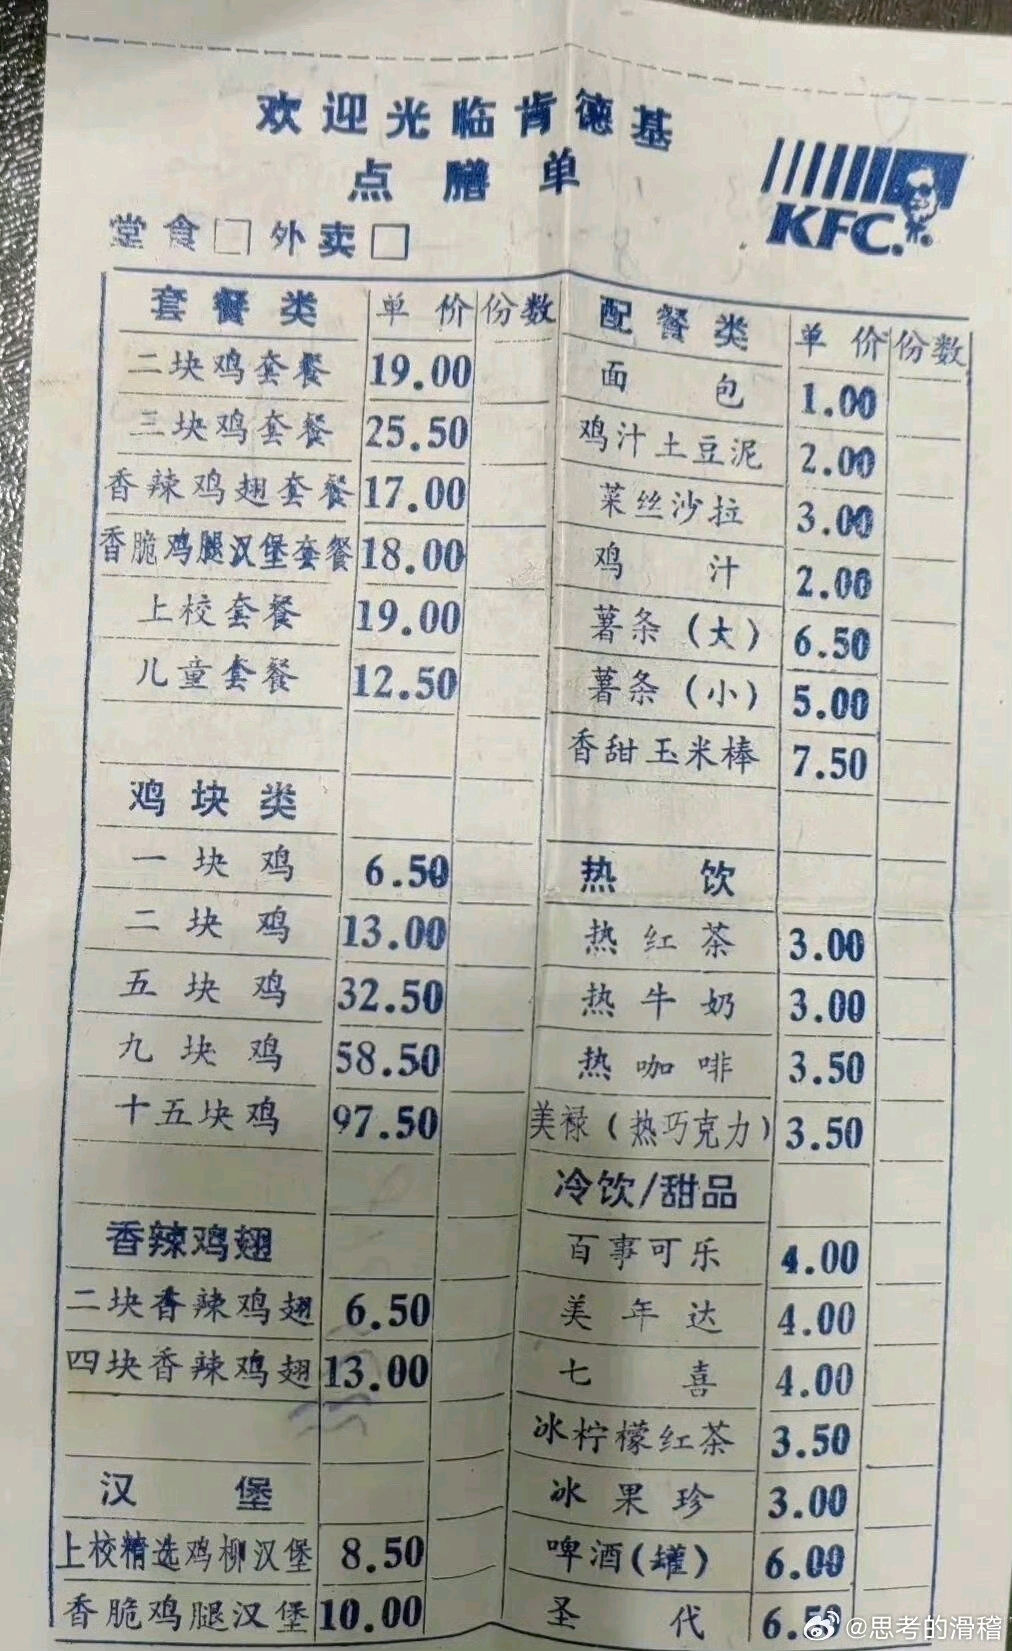 欢迎光临肯德基
点膳单
KFC
堂食□外卖□
套餐类 单价 份数
二块鸡套餐 19.00
三块鸡套餐 25.50
香辣鸡翅套餐 17.00
香脆鸡腿汉堡套餐 18.00
上校套餐 19.00
儿童套餐 12.50
鸡块类
一块鸡 6.50
二块鸡 13.00
五块鸡 32.50
九块鸡 58.50
十五块鸡 97.50
香辣鸡翅
二块香辣鸡翅 6.50
四块香辣鸡翅 13.00
汉堡
上校精选鸡柳汉堡 8.50
香脆鸡腿汉堡 10.00
配餐类 单价 份数
面包 1.00
鸡汁土豆泥 2.00
菜丝沙拉 3.00
鸡汁 2.00
薯条(大) 6.50
薯条(小) 5.00
香甜玉米棒 7.50
热饮
热红茶 3.00
热牛奶 3.00
热咖啡 3.50
美禄(热巧克力) 3.50
冷饮/甜品
百事可乐 4.00
美年达 4.00
七喜 4.00
冰柠檬红茶 3.50
冰果珍 3.00
啤酒(罐) 6.00
圣代 6.50
@思考的滑稽